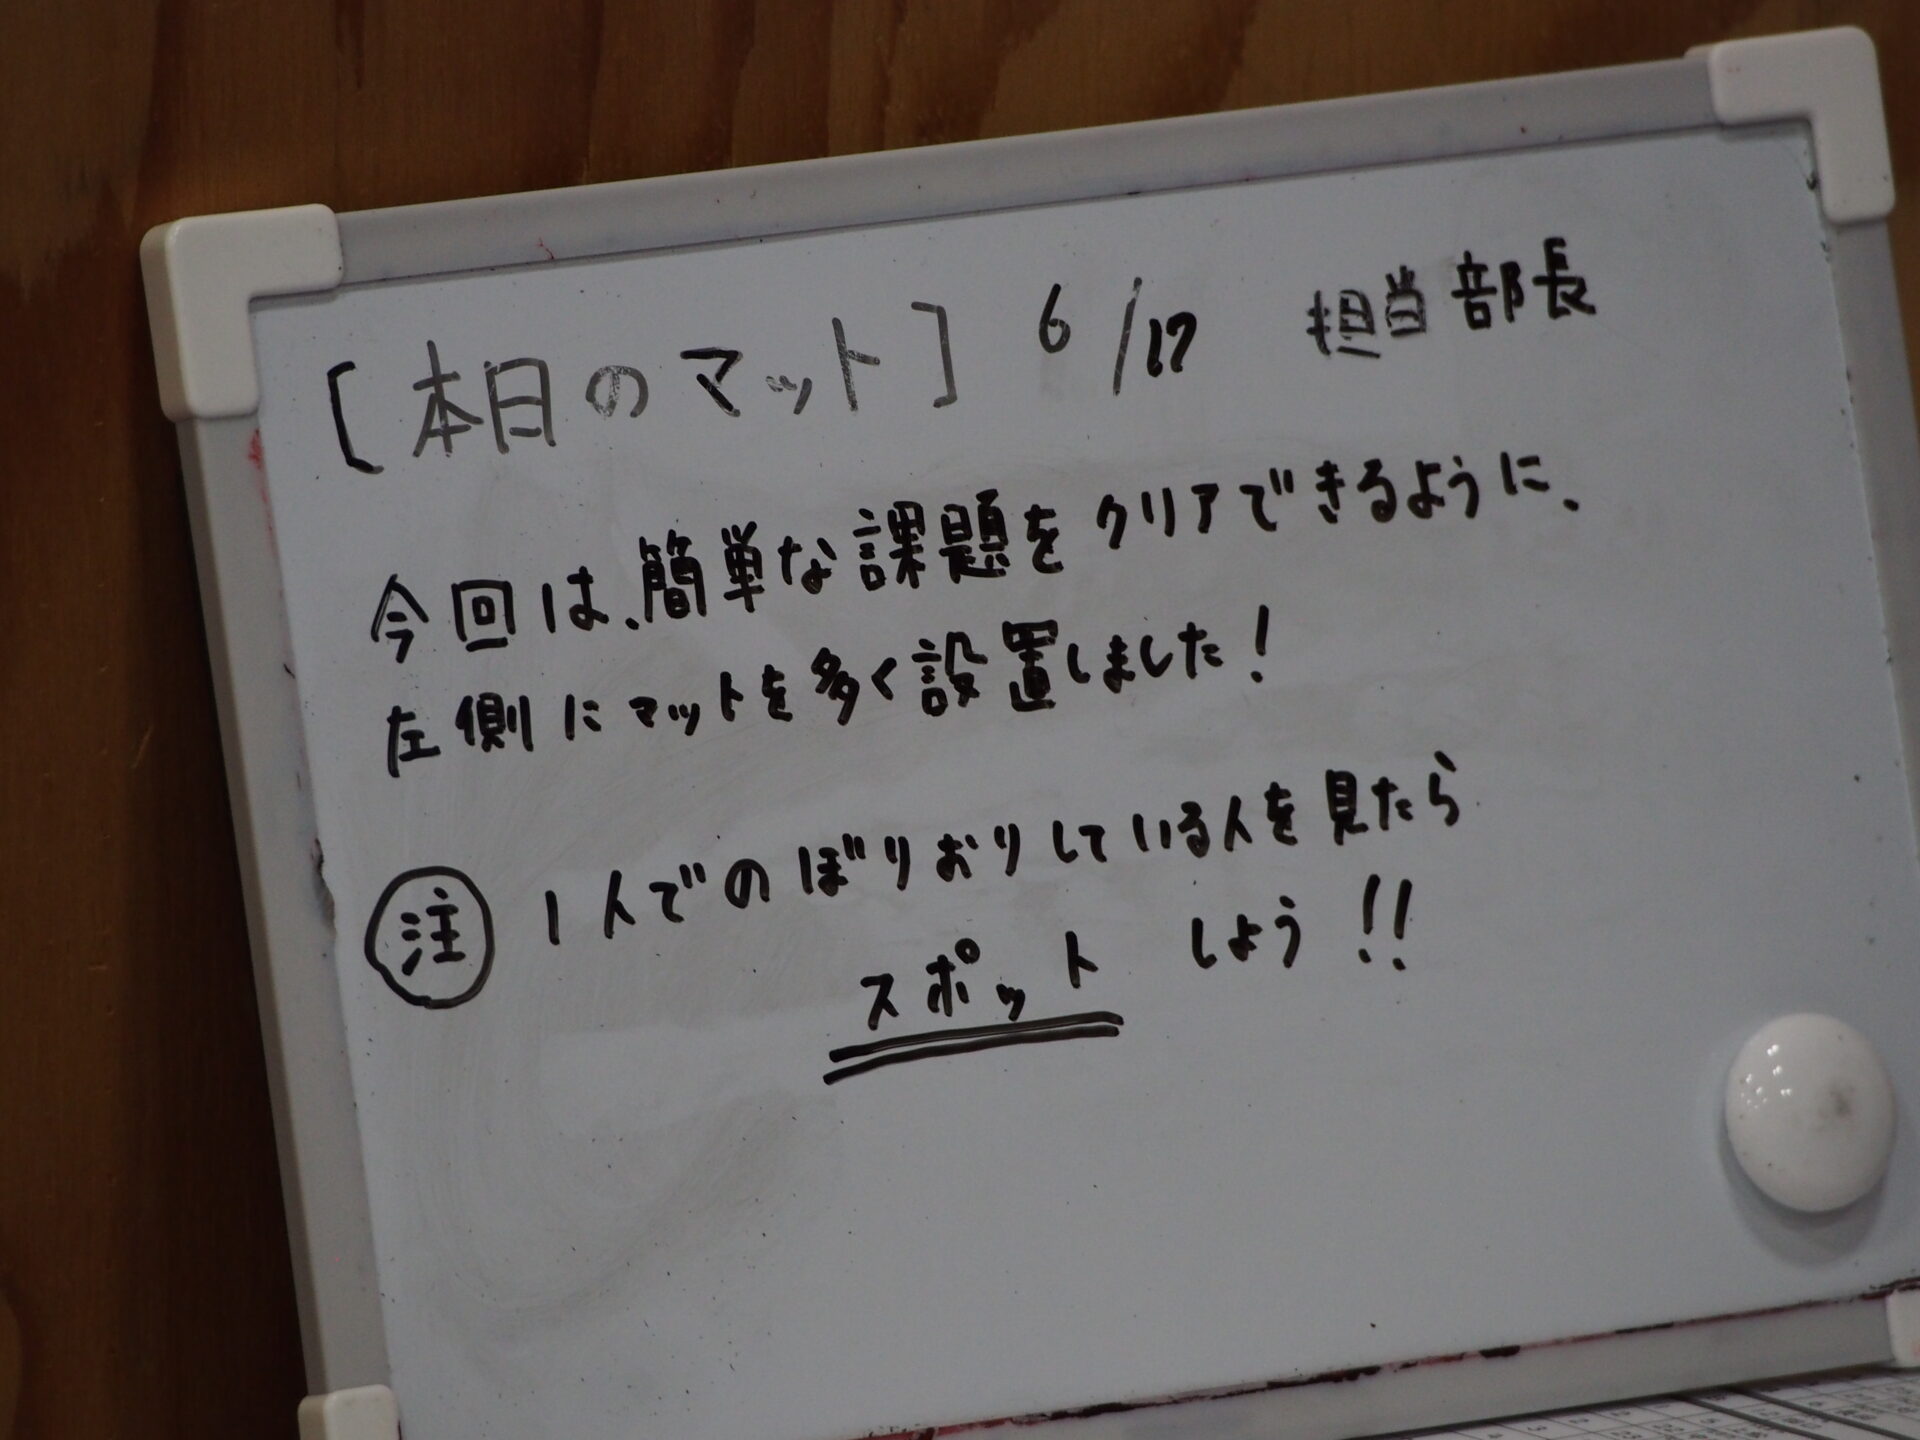 [本日のマット] 6/17 担当部長
今回は、簡単な課題をクリアできるように、
左側にマットを多く設置しました!
注 1人でのぼりおりしている人を見たら
スポットしよう!!